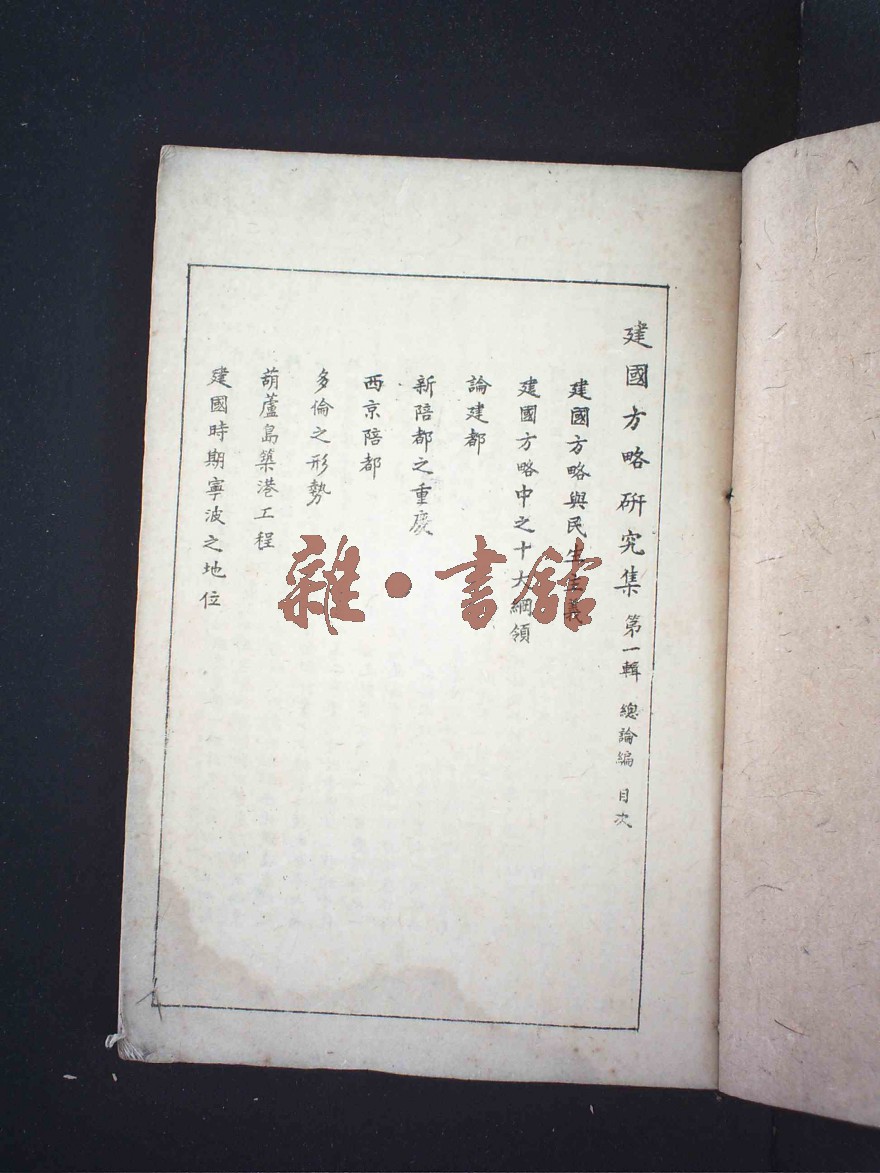 建國方略研究集 第一輯 總論編 目次
建國方略與民生主義
建國方略中之十大綱領
論建都
新陪都之重慶
西京陪都
多倫之形勢
葫蘆島築港工程
建國時期寧波之地位
雜·書館